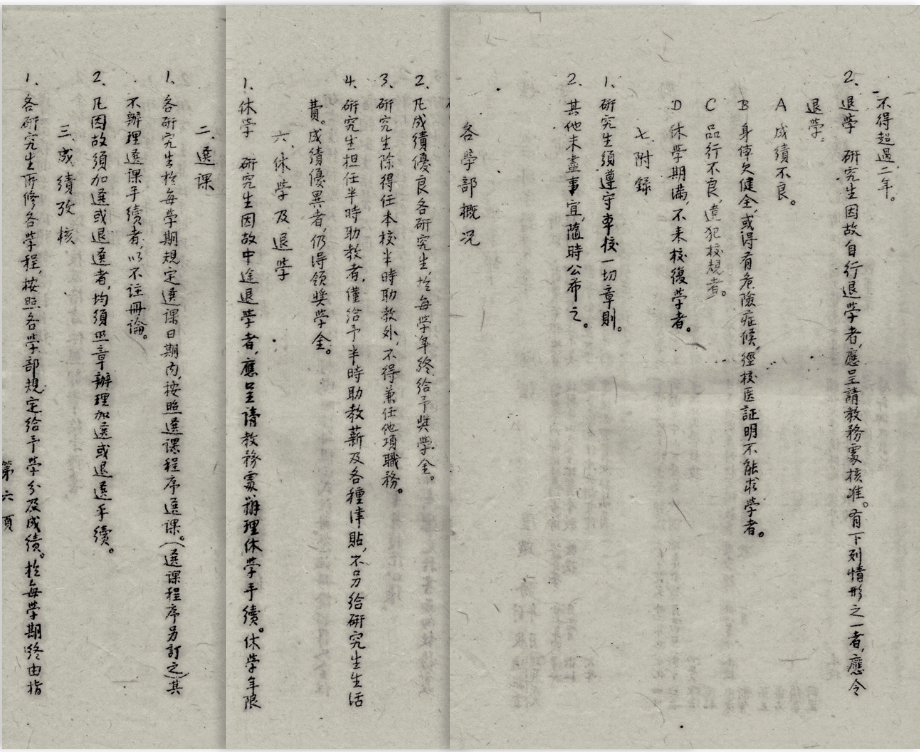 不得超過二年。
2. 退學 研究生因故自行退學者，應呈請教務處核准。有下列情形之一者，應令
退學。
A 成績不良。
B 身体欠健全，或得有危險症候，經校医証明不能求學者。
C 品行不良，違犯校規者。
D 休學期滿，不來校復學者。
七、附錄
1. 研究生須遵守本校一切章則。
2. 其他未盡事宜，隨時公布之。
各學部概况
2. 凡成績優良各研究生於每學年終給予奬學金。
3. 研究生除得任本校半時助教外，不得兼任他項職務。
4. 研究生担任半時助教者，僅給予半時助教薪及各種津貼，不另給研究生生活
費。成績優異者，仍得領奬學金。
六、休學及退學
1. 休學 研究生因故中途退學者，應呈請教務處，辦理休學手續。休學年限
二、選課
1. 各研究生於每學期規定選課日期内，按照選課程序選課。（選課程序另訂之）其
不辦理選課手續者，以不註冊論。
2. 凡因故須加選或退選者，均須照章辦理加选或退選手續。
三、成績攷核
1. 各研究生所修各學程，按照各學部規定給予學分及成績。於每學期終由指
第六頁